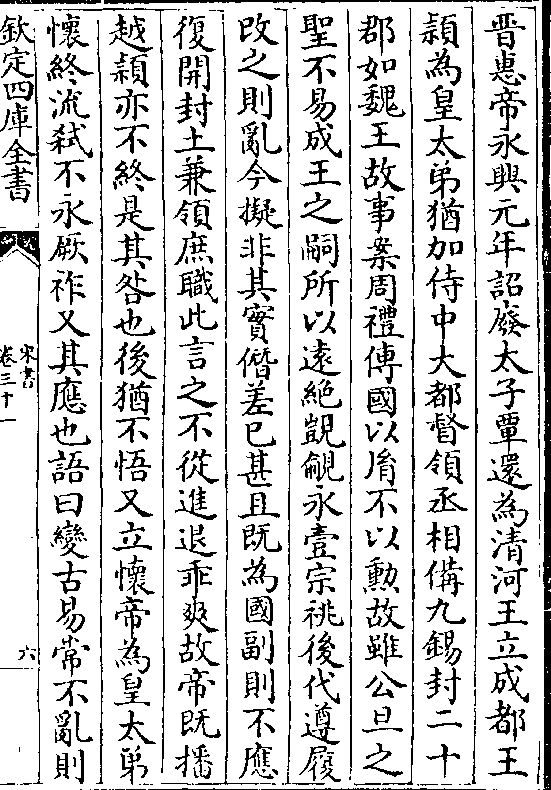 晋惠帝永興元年詔廢太子覃還為清河王立成都王
穎為皇太弟猶加侍中大都督領丞相備九錫封二十
郡如魏王故事案周禮傳國以𦙍不以勲故雖公旦之
聖不易成王之嗣所以逺絶覬覦永壹宗祧後代遵履
改之則亂今擬非其實僭差已甚且既為國副則不應
復開封土兼領庶職此言之不從進退乖爽故帝既播
越穎亦不終是其咎也後猶不悟又立懷帝為皇太弟
懷終流弑不永厥祚又其應也語曰變古易常不亂則
欽定四庫全書
宋書
卷三十一
六